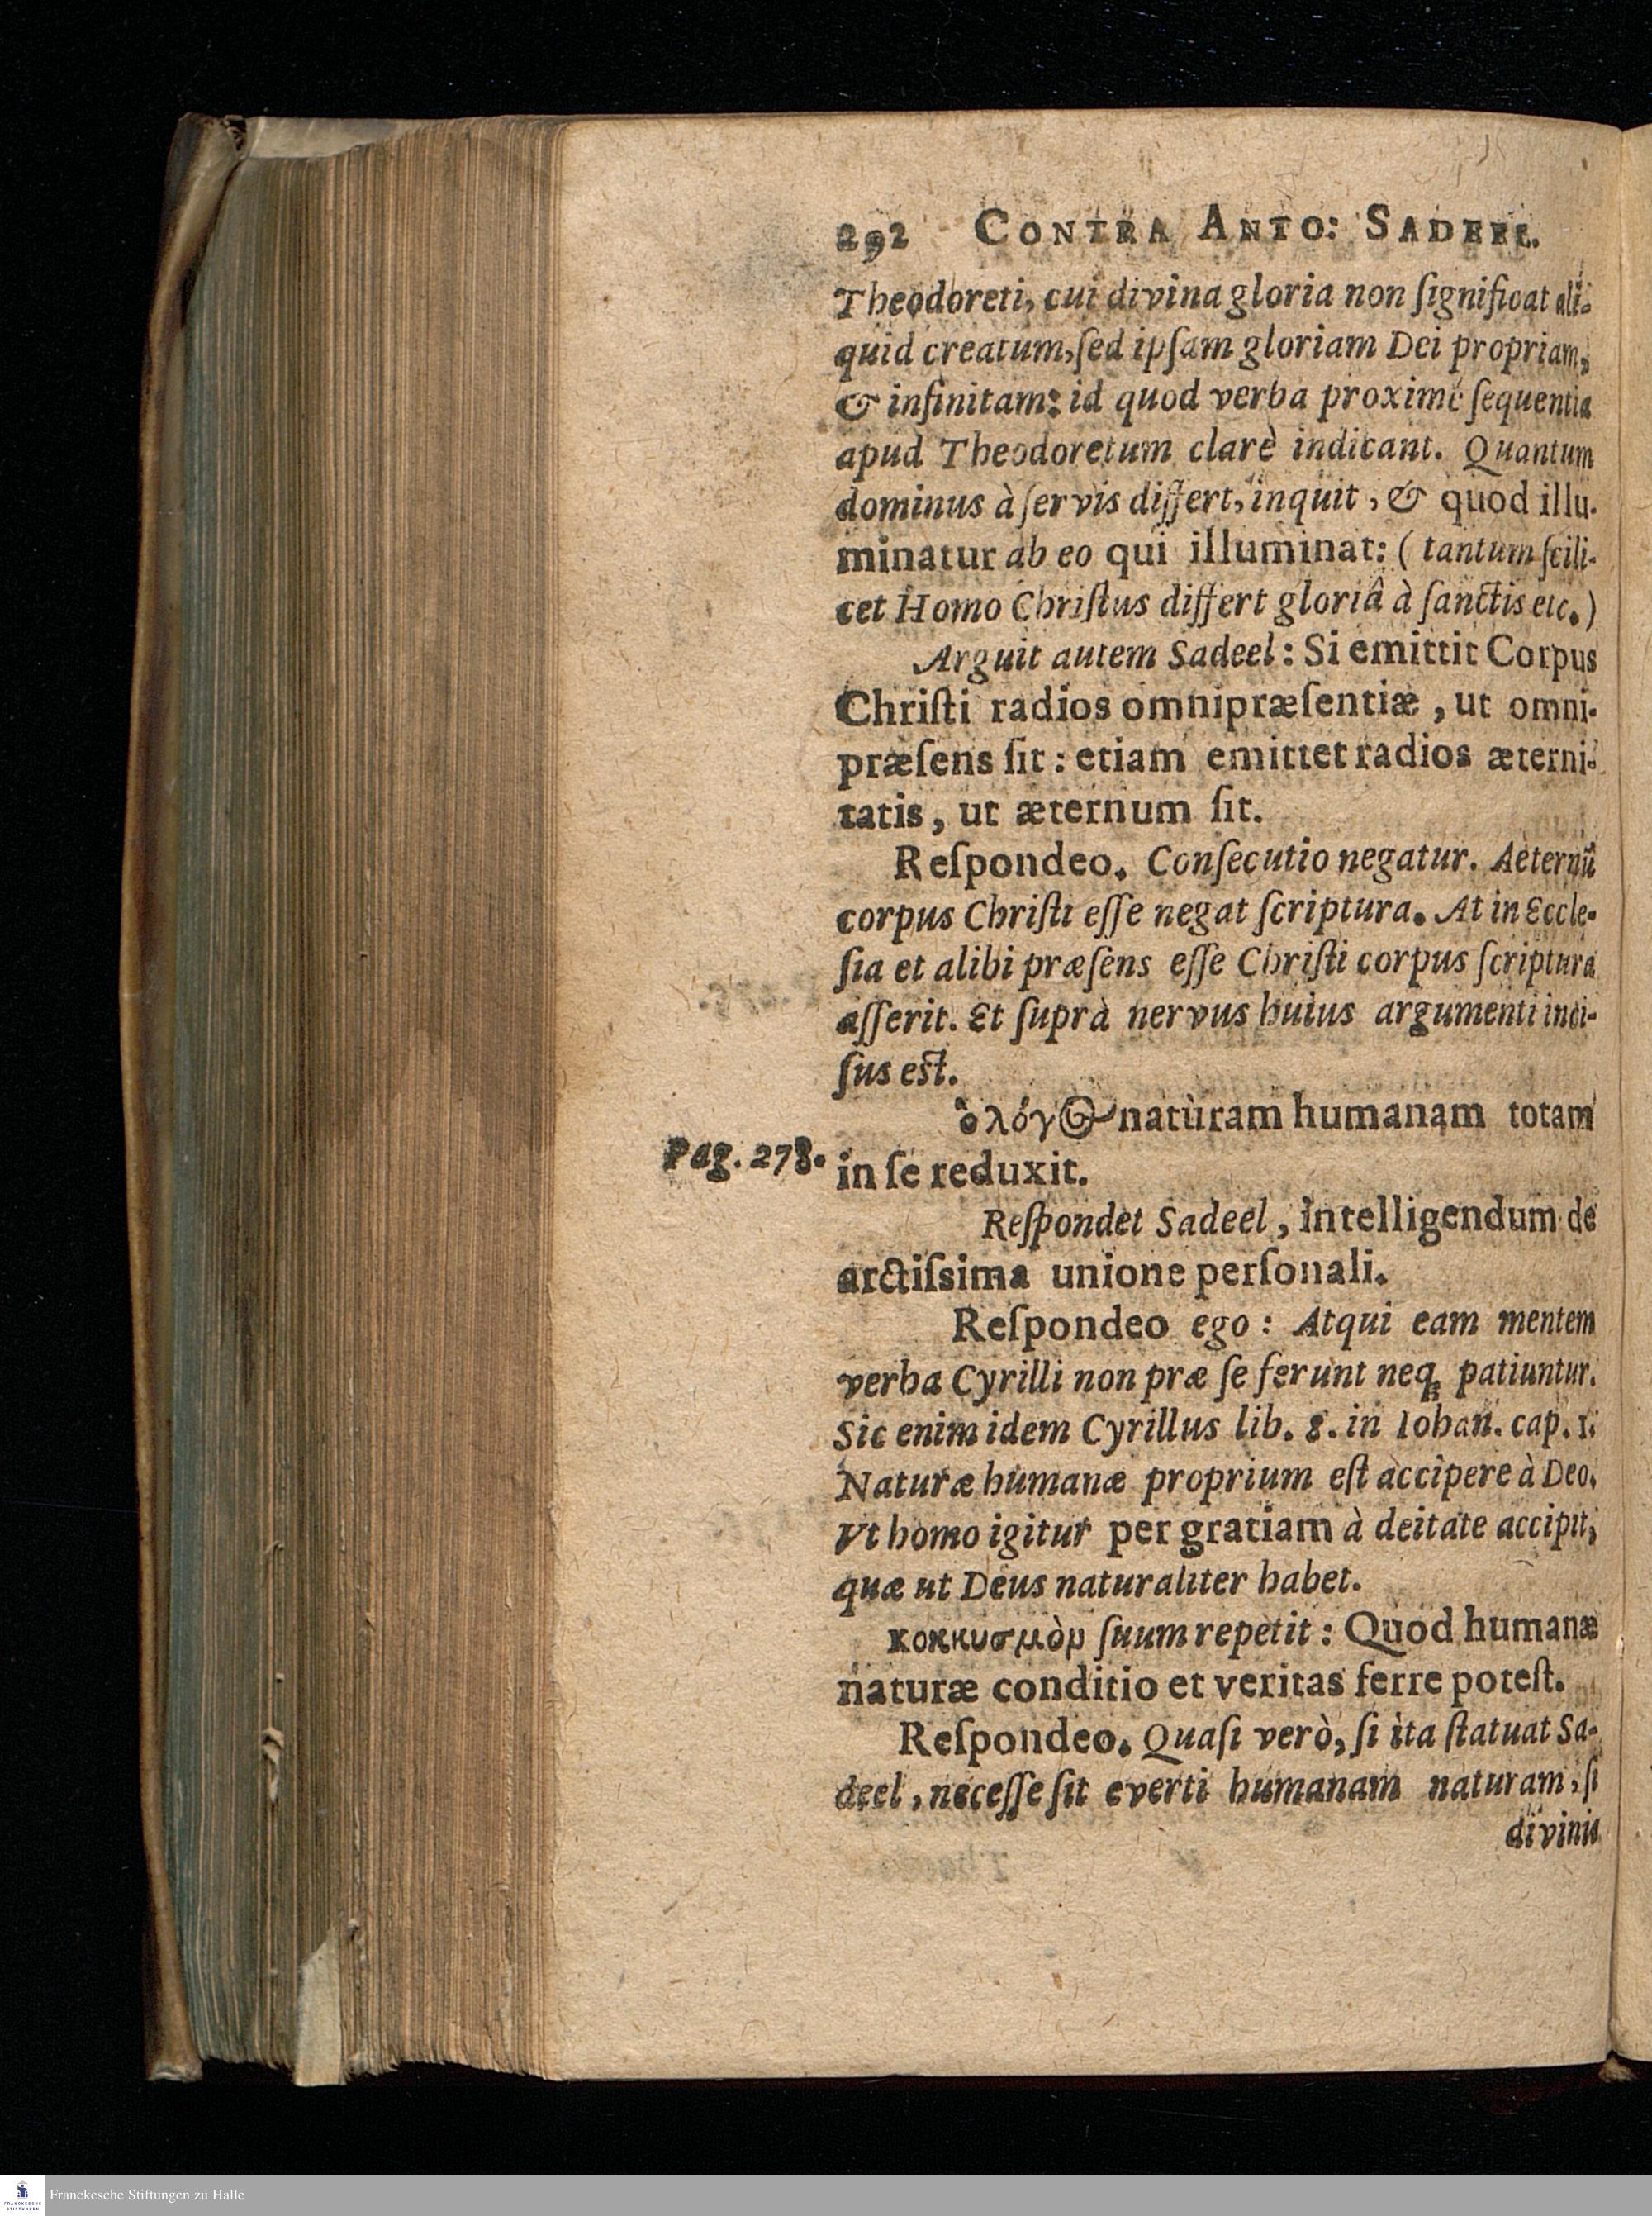 292 CONTRA ANTO: SADEEL.
Theodoreti, cui divina gloria non ſignificat ali-
quid creatum, ſed ipſam gloriam Dei propriam,
& infinitam: id quod verba proximè ſequentia
apud Theodoretum clarè indicant. Quantum
dominus à ſervis differt, inquit, & quod illu-
minatur ab eo qui illuminat: ( tantum ſcili-
cet Homo Chriſtus differt gloriâ à ſanctis etc.)
Arguit autem Sadeel: Si emittit Corpus
Chriſti radios omnipræſentiæ, ut omni-
præſens ſit: etiam emittet radios æterni-
tatis, ut æternum ſit.
Reſpondeo. Conſecutio negatur. Aeternū
corpus Chriſti eſſe negat ſcriptura. At in Eccle-
ſia et alibi præſens eſſe Chriſti corpus ſcriptura
aſſerit. Et ſuprà nervus huius argumenti inci-
ſus eſt.
ὁ λόγος naturam humanam totam
Pag. 278. in ſe reduxit.
Reſpondet Sadeel, intelligendum de
arctiſsima unione perſonali.
Reſpondeo ego: Atqui eam mentem
verba Cyrilli non præ ſe ferunt neq; patiuntur.
Sic enim idem Cyrillus lib. 8. in Iohan. cap. 1.
Naturæ humanæ proprium eſt accipere à Deo.
Vt homo igitur per gratiam à deitate accipit,
quæ ut Deus naturaliter habet.
κοκκυσμὸν ſuum repetit: Quod humanæ
naturæ conditio et veritas ferre poteſt.
Reſpondeo. Quaſi verò, ſi ita ſtatuat Sa-
deel, neceſſe ſit everti humanam naturam, ſi
divinis
Franckesche Stiftungen zu Halle